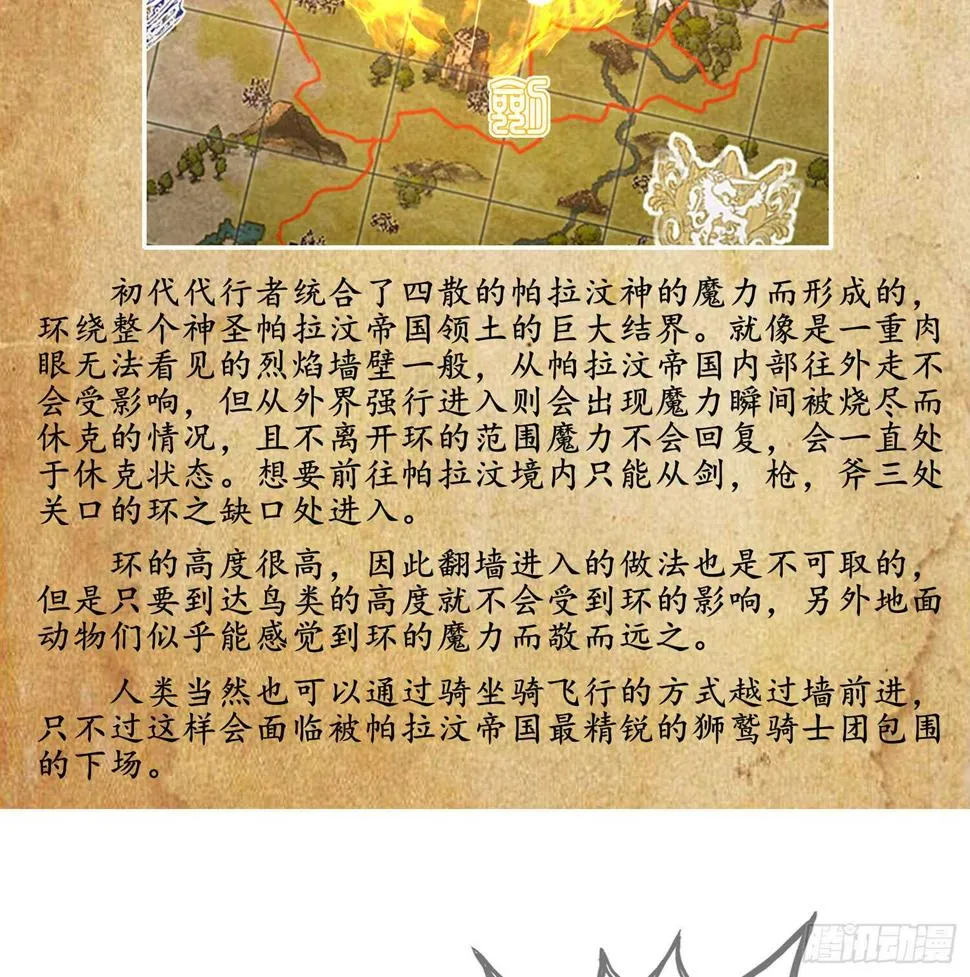 劍
初代代行者统合了四散的帕拉汶神的魔力而形成的，
环绕整个神圣帕拉汶帝国领土的巨大结界。就像是一重肉
眼无法看见的烈焰墙壁一般，从帕拉汶帝国内部往外走不
会受影响，但从外界强行进入则会出现魔力瞬间被烧尽而
休克的情况，且不离开环的范围魔力不会回复，会一直处
于休克状态。想要前往帕拉汶境内只能从剑，枪，斧三处
关口的环之缺口处进入。
环的高度很高，因此翻墙进入的做法也是不可取的，
但是只要到达鸟类的高度就不会受到环的影响，另外地面
动物们似乎能感觉到环的魔力而敬而远之。
人类当然也可以通过骑坐骑飞行的方式越过墙前进，
只不过这样会面临被帕拉汶帝国最精锐的狮鹫骑士团包围
的下场。
腾讯动漫